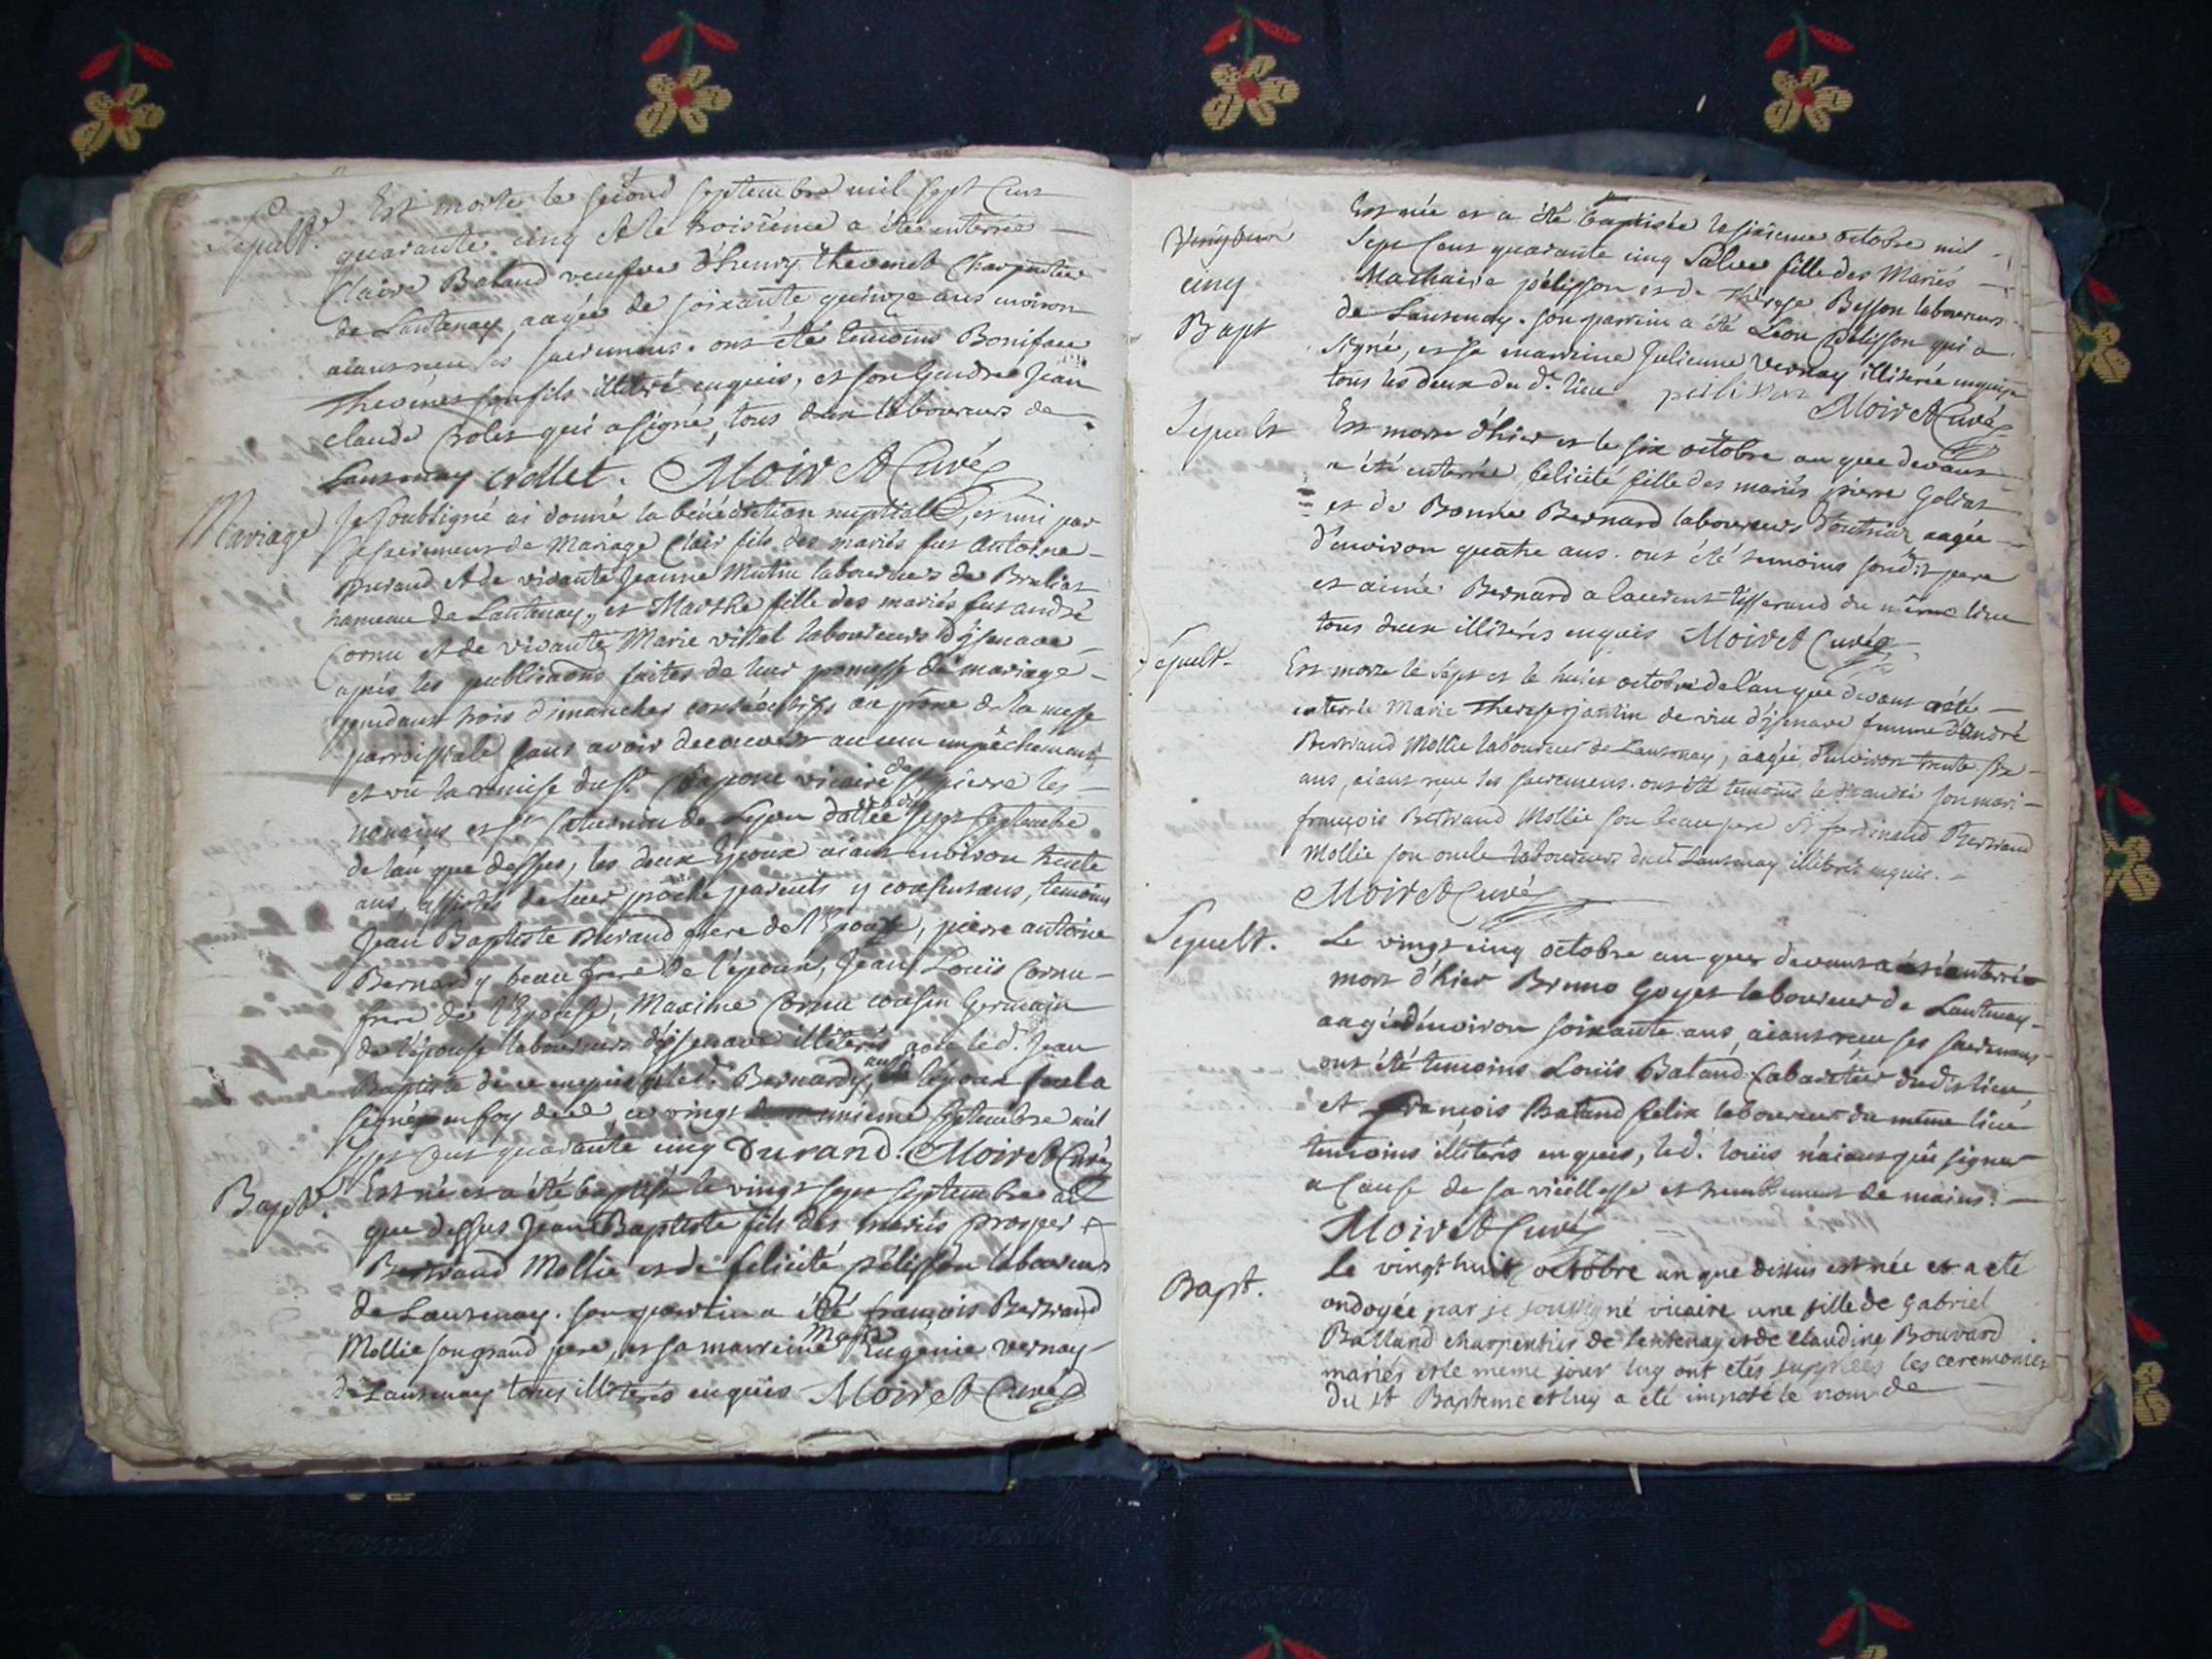 Sepult. Est morte le second septembre mil sept cens
quarante cinq et le troisiéme a été enterrée
Claire Baland veufve d'henry thevenet Charpentier
de Lantenay, aagée de soixante quinze ans environ
aiant receu les sacremens. ont été temoins Boniface
Thevenet son fils illitéré enquis, et son Gendre Jean
claude Crolet qui a signé, tous deux laboureurs de
Lantenay crollet. Moiret Curé
Mariage Je soubsigné ai donné la bénédiction nuptiale, et uni par
le sacrement de Mariage Clair fils des mariés fut antoine
Durand et de vivante Jeanne Mutin laboureurs de
hameau de Lantenay, et Marthe fille des mariés fut andré
Cornu et de vivante Marie vittet laboureurs d'jsenave
aprés les publications faites de leur promesse de mariage
pendant trois dimanches consécutifs au prone de la messe
parroissiale sans avoir decouvert aucun empêchement,
et vû la remise du Sr vicaire de St pierre les
nonains et St Saturnin de Lyon dattée du dix sept septembre
de l'an que dessus, les deux Epoux aiant environ trente
ans, assistés de leur proche parents y consentans, temoins
Jean Baptiste Durand frere de l'Epoux, pierre antoine
Bernardy beau frere de l'epoux, Jean Louis Cornu
frere de l'Epouse, Maxime Cornu cousin Germain
de l'épouse laboureurs d'jssenave illiterés avec led. Jean
Baptiste de ce enquis et led. Bernardy avec lepoux
signé en foy de ce ce vingt unieme septembre mil
sept cens quarante cinq Durand. Moiret Curé
Bapt. Est né et a été baptisé le vingt sept septembre an
que dessus Jean Baptiste fils des mariés prosper
Bertrand Mollie et de felicité pélisson laboureurs
de Lantenay. son parrin a été françois Bertrand
Mollie son grand pere, et sa marreine Marie Eugenie vernay
de Lantenay tous illiterés enquis Moiret Curé
Est née et a été baptisée le sixieme octobre mil
vingt deux Sept Cens quarante cinq fille des Mariés
cinq Machaire pélisson et de thérese Besson laboureurs
Bapt de Lantenay. son parrein a été Leon pélisson qui a
signé, et sa marreine Julienne vernay illiterée enquise
tous les deux du d. lieu pelisson
Moiret Curé
Sepult Est morte d'hier et le six octobre an que devant
a été enterrée felicité fille des mariés pierre Golias
et de Bonne Bernard laboureurs aagée
d'environ quatre ans. ont été temoins sondit pere
et aimé Bernard a laurent tisserand du même lieu
tous deux illiterés enquis Moiret Curé
Sepult. Est morte le sept et le huit octobre de l'an que devant a été
enterrée Marie Therese de vieu d'jsenave femme d'andré
Bertrand Mollie laboureur de Lantenay, aagée d'environ trente six
ans, aiant receu les sacremens. ont été temoins le d. andré son mari
françois Bertrand Mollie son beau pere et ferdinand Bertrand
Mollie son oncle laboureurs dud. Lantenay illiterés enquis.
Moiret Curé
Sepult. Le vingt cinq octobre an que devant a été enterré
mort d'hier Bruno Goyet laboureur de Lantenay
aagé d'environ soixante ans, aiant receu les sacremens
ont été temoins Louis Baland Cabaretier dudit lieu,
et françois Baland felix laboureur du même lieu
temoins illiterés enquis, led. louis n'aiant pû signer
a cause de sa vieillesse et tremblement de mains.
Moiret Curé
Bapt. Le vingt huit octobre an que dessus est née et a eté
ondoyée par je soussigné vicaire une fille de Gabriel
Balland charpentier de lentenay et de claudine Bouvard
mariés et le meme jour luy ont etés suppleés les ceremonies
du St Bapteme et luy a eté imposé le nom de